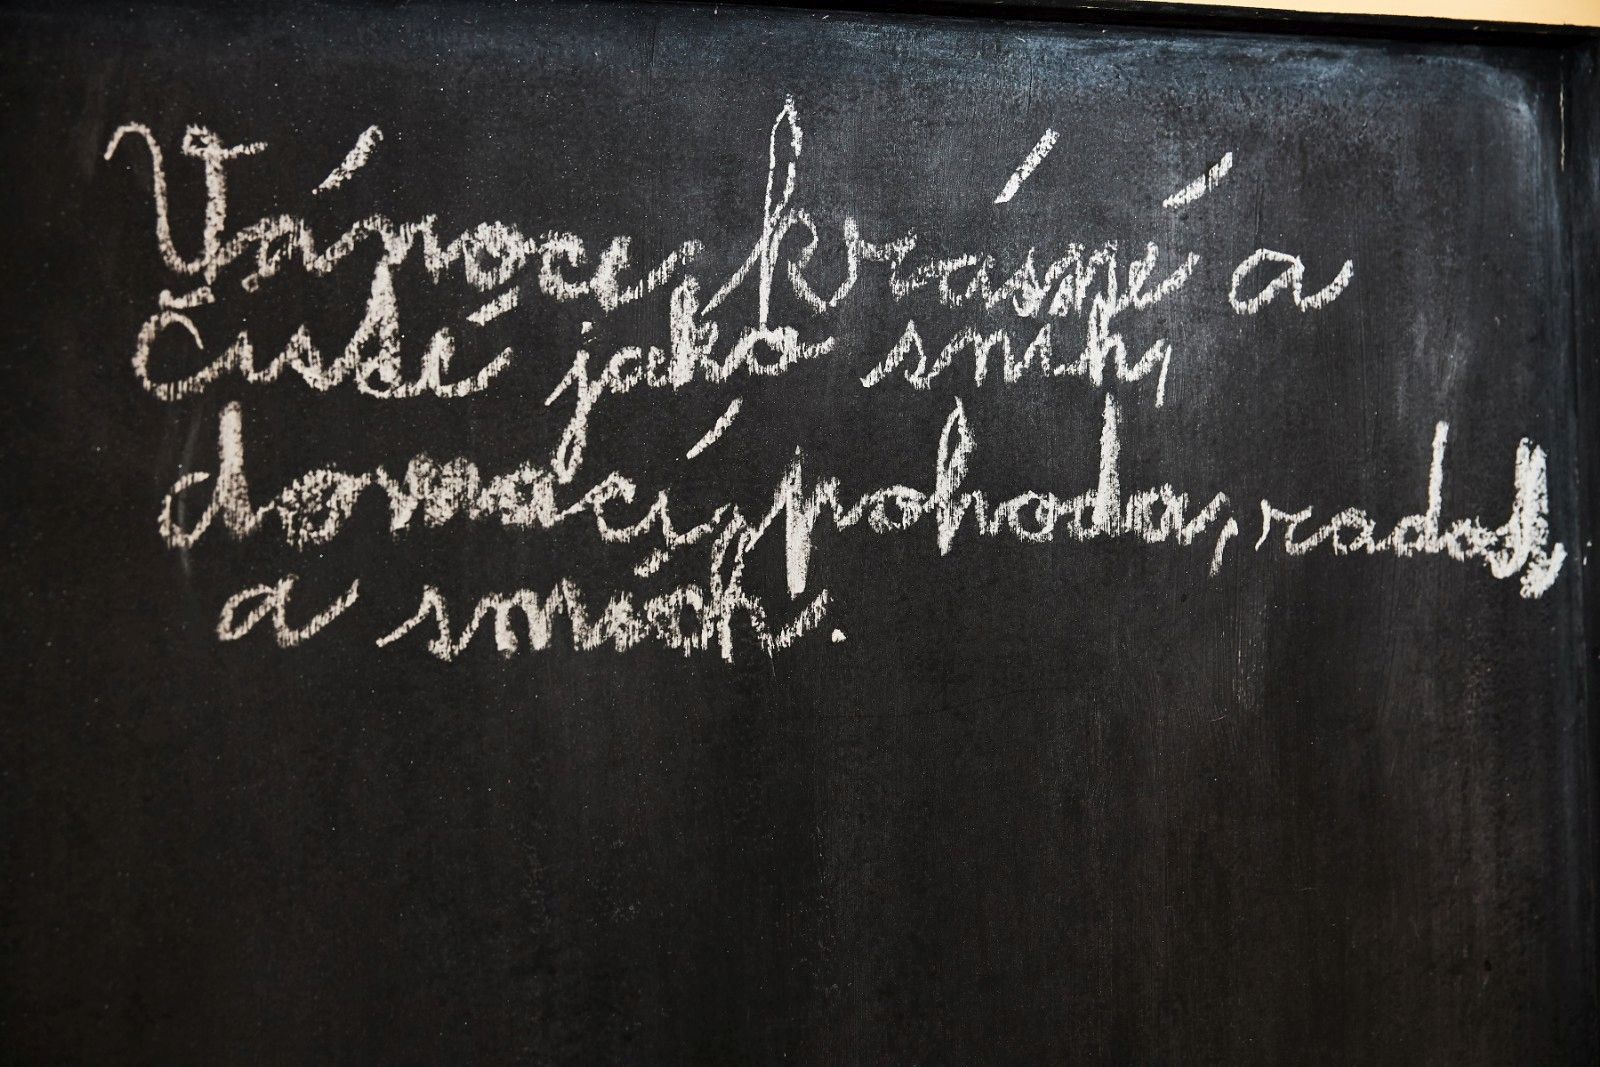 Vánoce krásné a
čisté jako snih,
domací pohoda, radost
a smích.